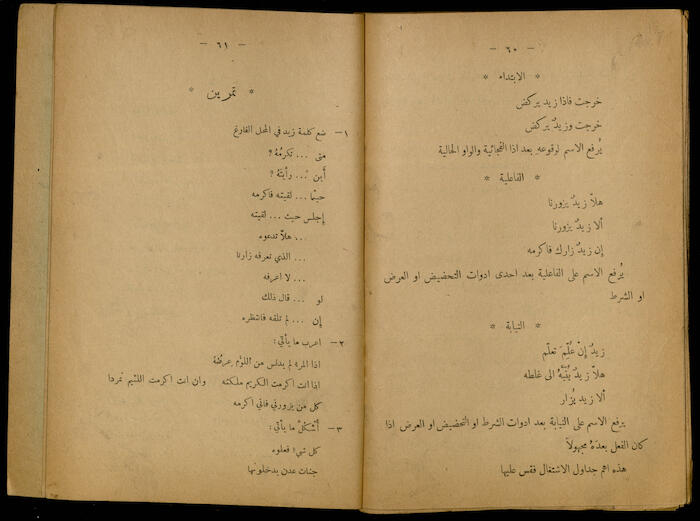 — ٦٠ —
* الابتداء *
خرجت فاذا زيد يركض
خرجت وزيدٌ يركض
يُرفع الاسم لوقوعهِ بعد اذا الفجائية والواو الحالية
* الفاعلية *
هلاّ زيدٌ يزورنا
ألا زيدٌ يزورنا
إن زيدٌ زارك فاكرمه
يُرفع الاسم على الفاعلية بعد احدى ادوات التحضيض او العرض
او الشرط
* النيابة *
زيدٌ إنْ عُلِّمَ تعلّم
هلاّ زيدٌ يُنَبَّهُ الى غلطه
ألا زيد يُزار
يرفع الاسم على النيابة بعد ادوات الشرط او التحضيض او العرض اذا
كان الفعل بعدهُ مجهولاً
هذه اهم جداول الاشتغال فقس عليها
— ٦١ —
* تمرين *
١ — ضع كلمة زيد في المحل الفارغ
متى … تكرمُهُ ؟
أَين … رأيتَهُ ؟
حيثما … لقيتَه فاكرمه
إِجلس حيث … لقيته
… هلاّ تدعوه
… الذي تعرفه زارنا
… لا اعرفه
لو … قال ذلك
إِن … لم تلقه فانتظره
٢ — اعرب ما يأتي :
اذا المرء لم يدنس من اللؤم عِرضُهُ
اذا انت اكرمت الكريم ملكته وان انت اكرمت اللئيم تمردا
كل من يزورني فاني اكرمه
٣ — أُشكُلْ ما يأتي :
كل شيء فعلوه
جنات عدن يدخلونها